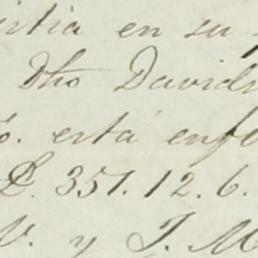 istia en su
Dho David
está enfe
£. 351. 12. 6.
V. y J. M